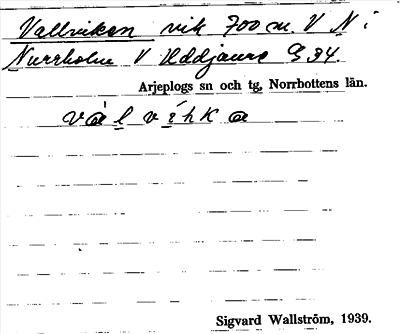 Vallviken vik 700 m. V N i
Nurrholm V Uddjaure G 34.
Arjeplogs sn och tg, Norrbottens län.
vál víhka
Sigvard Wallström, 1939.